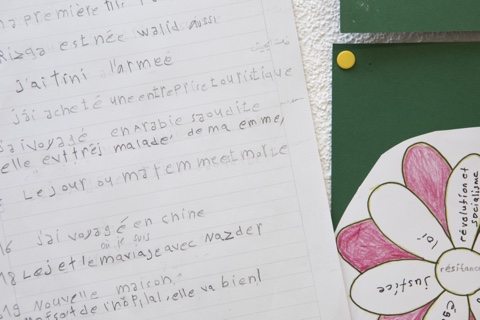 a première fill
Rizga est née walid aussi
j'ai fini l'armeé
jai acheté une entreprise touristique
ai voyagé en Arabie saoudite
elle ev très malade, de ma emme,
Le jour ou ma temme et morte
16 jai voyagé en chine
on je suis
18 Lej et le mariage avec Nazder
19 Nouvelle maison,
sort de l'hôpital, elle va bien
révolution et
socialisme
loi
justice
résitance